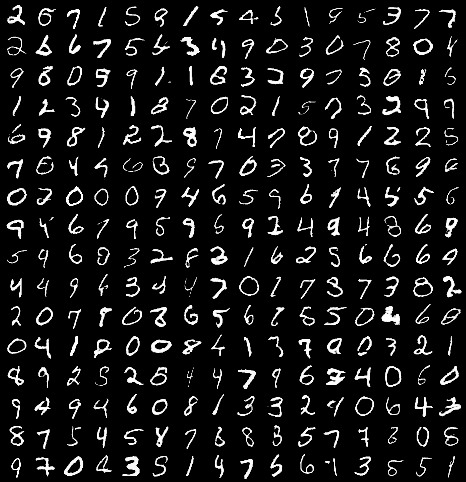 2 6 7 1 5 9 1 5 4 5 1 9 5 3 7 7
2 6 6 7 5 6 3 4 9 0 3 0 7 8 0 4
9 8 0 5 9 1 1 8 3 2 9 7 5 0 1 6
1 2 3 4 1 8 7 0 2 1 5 7 3 2 9 9
6 9 8 1 2 2 8 7 4 7 8 9 1 2 2 5
7 0 4 4 6 8 9 7 0 3 3 7 7 6 9 6
0 2 0 0 0 7 4 6 5 9 6 1 4 5 5 6
9 4 6 7 9 5 9 6 9 2 4 9 4 8 6 8
5 9 6 8 3 2 8 2 1 6 2 5 6 6 6 9
4 4 9 6 3 4 4 7 0 1 7 3 7 3 8 2
2 0 7 8 0 8 6 5 6 8 5 5 0 2 6 0
0 4 1 2 0 0 8 4 1 3 7 9 0 3 2 1
8 9 2 5 2 8 4 4 7 9 6 2 4 0 6 0
9 4 9 4 6 0 8 1 3 3 2 9 0 6 4 3
8 7 5 4 5 8 7 8 8 8 5 7 7 8 0 8
9 7 0 2 3 5 1 4 7 5 6 1 3 8 5 1